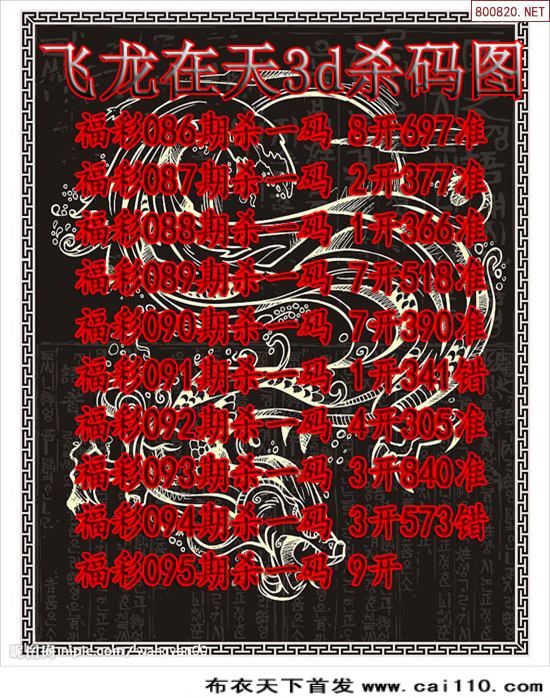 800820.NET
飞龙在天3d杀码图
福彩086期杀一码 8开697准
福彩087期杀一码 2开377准
福彩088期杀一码 1开366准
福彩089期杀一码 7开518准
福彩090期杀一码 7开390准
福彩091期杀一码 1开341错
福彩092期杀一码 4开305准
福彩093期杀一码 3开840准
福彩094期杀一码 3开573错
福彩095期杀一码 9开
布衣天下首发 www.cai110.com